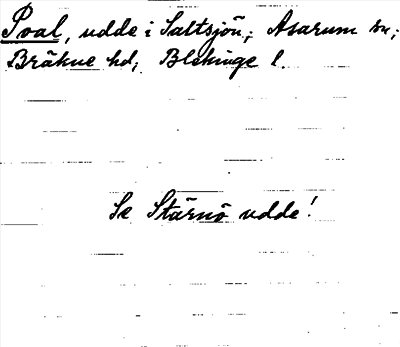 Pval, udde i Saltsjön; Asarum sn;
Bräkne hd; Blekinge l.
Se Stärnö udde!